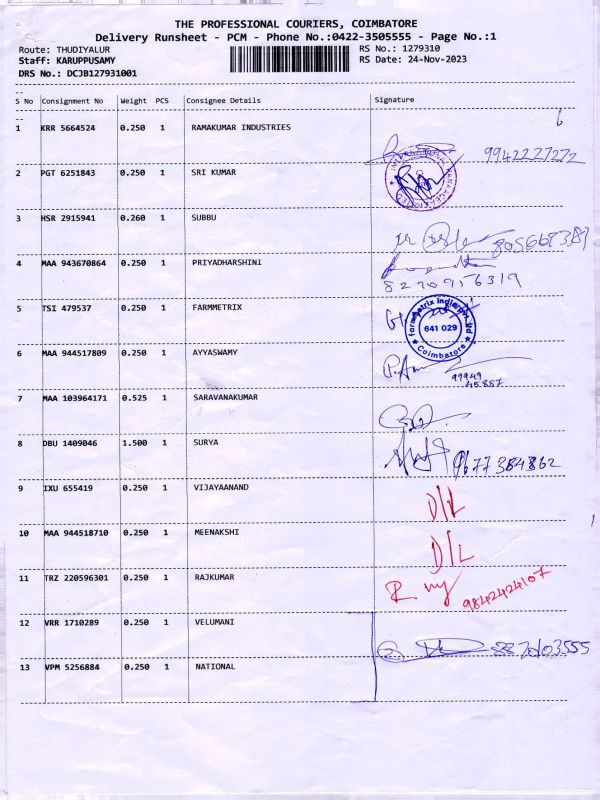 THE PROFESSIONAL COURIERS, COIMBATORE
Delivery Runsheet - PCM - Phone No.:0422-3505555 - Page No.:1
Route: THUDIYALUR RS No.: 1279310
Staff: KARUPPUSAMY RS Date: 24-Nov-2023
DRS No.: DCJB127931001
S No Consignment No Weight PCS Consignee Details Signature
1 KRR 5664524 0.250 1 RAMAKUMAR INDUSTRIES
9942227272
2 PGT 6251843 0.250 1 SRI KUMAR
3 HSR 2915941 0.260 1 SUBBU
4 MAA 943670864 0.250 1 PRIYADHARSHINI
8220956319
5 TSI 479537 0.250 1 FARMMETRIX
farmmetrix india pvt. ltd
641 029
Coimbatore
6 MAA 944517809 0.250 1 AYYASWAMY
99949
45887
7 MAA 103964171 0.525 1 SARAVANAKUMAR
8 DBU 1409046 1.500 1 SURYA
9677384862
9 IXU 655419 0.250 1 VIJAYAANAND
D/L
10 MAA 944518710 0.250 1 MEENAKSHI
D/L
11 TRZ 220596301 0.250 1 RAJKUMAR
9842424107
12 VRR 1710289 0.250 1 VELUMANI
13 VPM 5256884 0.250 1 NATIONAL